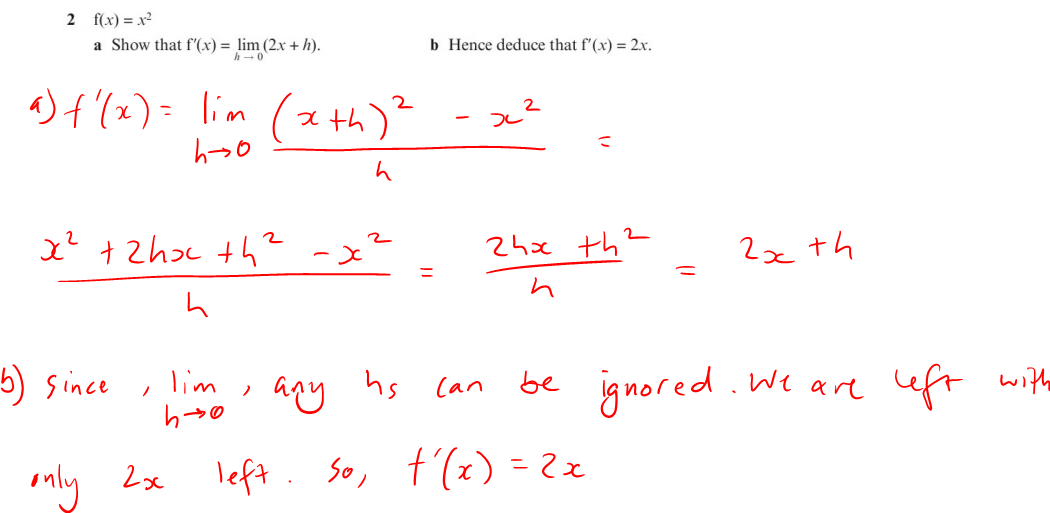 2 f(x) = x²
a Show that f′(x) = lim_{h→0} (2x + h). b Hence deduce that f′(x) = 2x.
a) f'(x) = lim_{h→0} ((x+h)² - x²)/h =
(x² + 2hx + h² - x²)/h = (2hx + h²)/h = 2x + h
b) since, lim_{h→0}, any hs can be ignored. We are left with
only 2x left. So, f'(x) = 2x